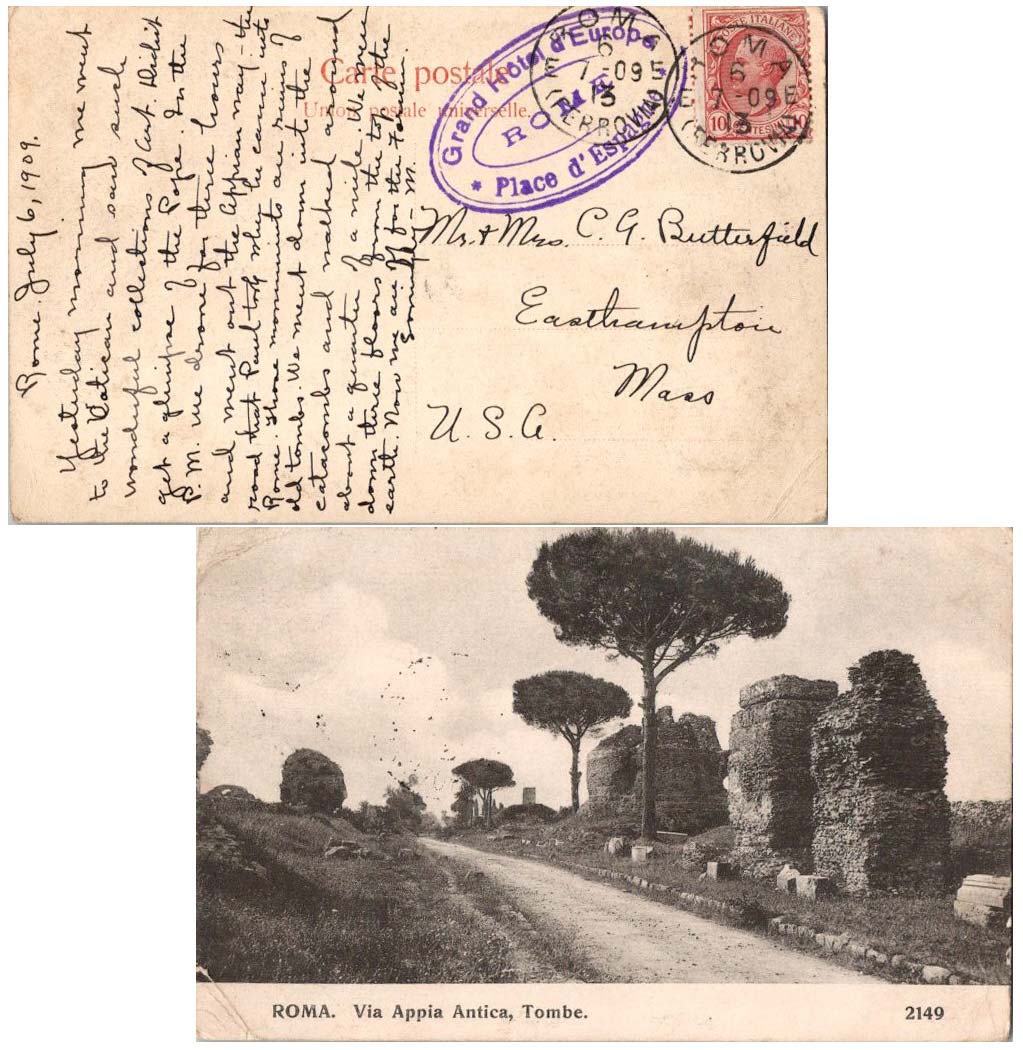 Carte postale
Union postale universelle.
Grand Hôtel d'Europe
ROME
* Place d'Espagne *
ROMA
6
7-09 E
13
FERROVIA
POSTE ITALIANE
10
ROMA
6
7-09 E
13
FERROVIA
Rome. July 6, 1909.
Yesterday morning we went
to the Vatican and saw such
wonderful collections of art. Didn't
get a glimpse of the Pope. In the
P.M. we drove for three hours
and went out the Appian way - the
road that Paul took when he came into
Rome. Those monuments are ruins of
old tombs. We went down into the
catacombs and walked around
about a quarter of a mile. We were
down three floors from the top of the
earth. Now we are off for the
M.
Mr. & Mrs. C. G. Butterfield
Easthampton
Mass
U.S.A.
ROMA. Via Appia Antica, Tombe.
2149